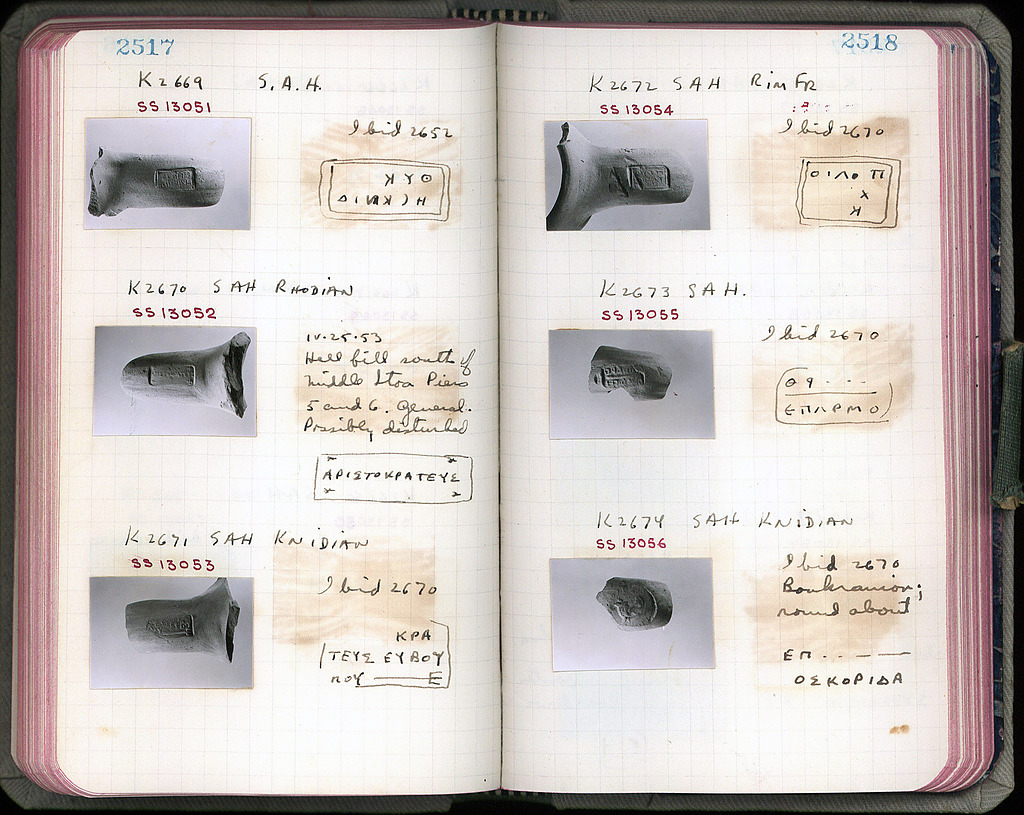 2517
K2669 S.A.H.
SS 13051
Ibid 2652
ΘΥΚ
K2670 SAH RHODIAN
SS 13052
IV·25·53
Hell fill south of
middle Stoa Piers
5 and 6. General.
Possibly disturbed
ΑΡΙΣΤΟΚΡΑΤΕΥΣ
K2671 SAH KNIDIAN
SS 13053
Ibid 2670
ΚΡΑ
ΤΕΥΣ ΕΥΒΟΥ
ΠΟΥ Ε
2518
K2672 SAH Rim FR
SS 13054
Ibid 2670
ΠΟΛΙΟ
Χ
Κ
K2673 SAH.
SS 13055
Ibid 2670
ΕΠΑΡΜΟ
K2674 SAH KNIDIAN
SS 13056
Ibid 2670
Boukranion;
round about
ΕΠ . . . — —
ΟΣΚΟΡΙΔΑ